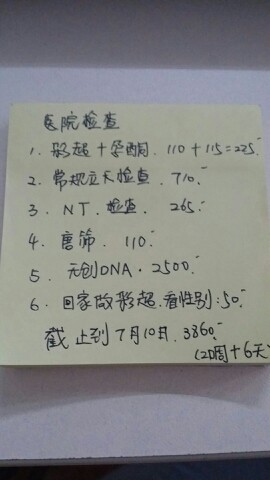 医院检查
1. 彩超十孕酮. 110 + 115 = 225.-
2. 常规五天检查. 710.-
3. NT. 检查. 265.-
4. 唐筛. 110.-
5. 无创DNA. 2500.-
6. 回家做彩超.看性别:50.-
截止到7月10日. 3860.-
(20周+6天)